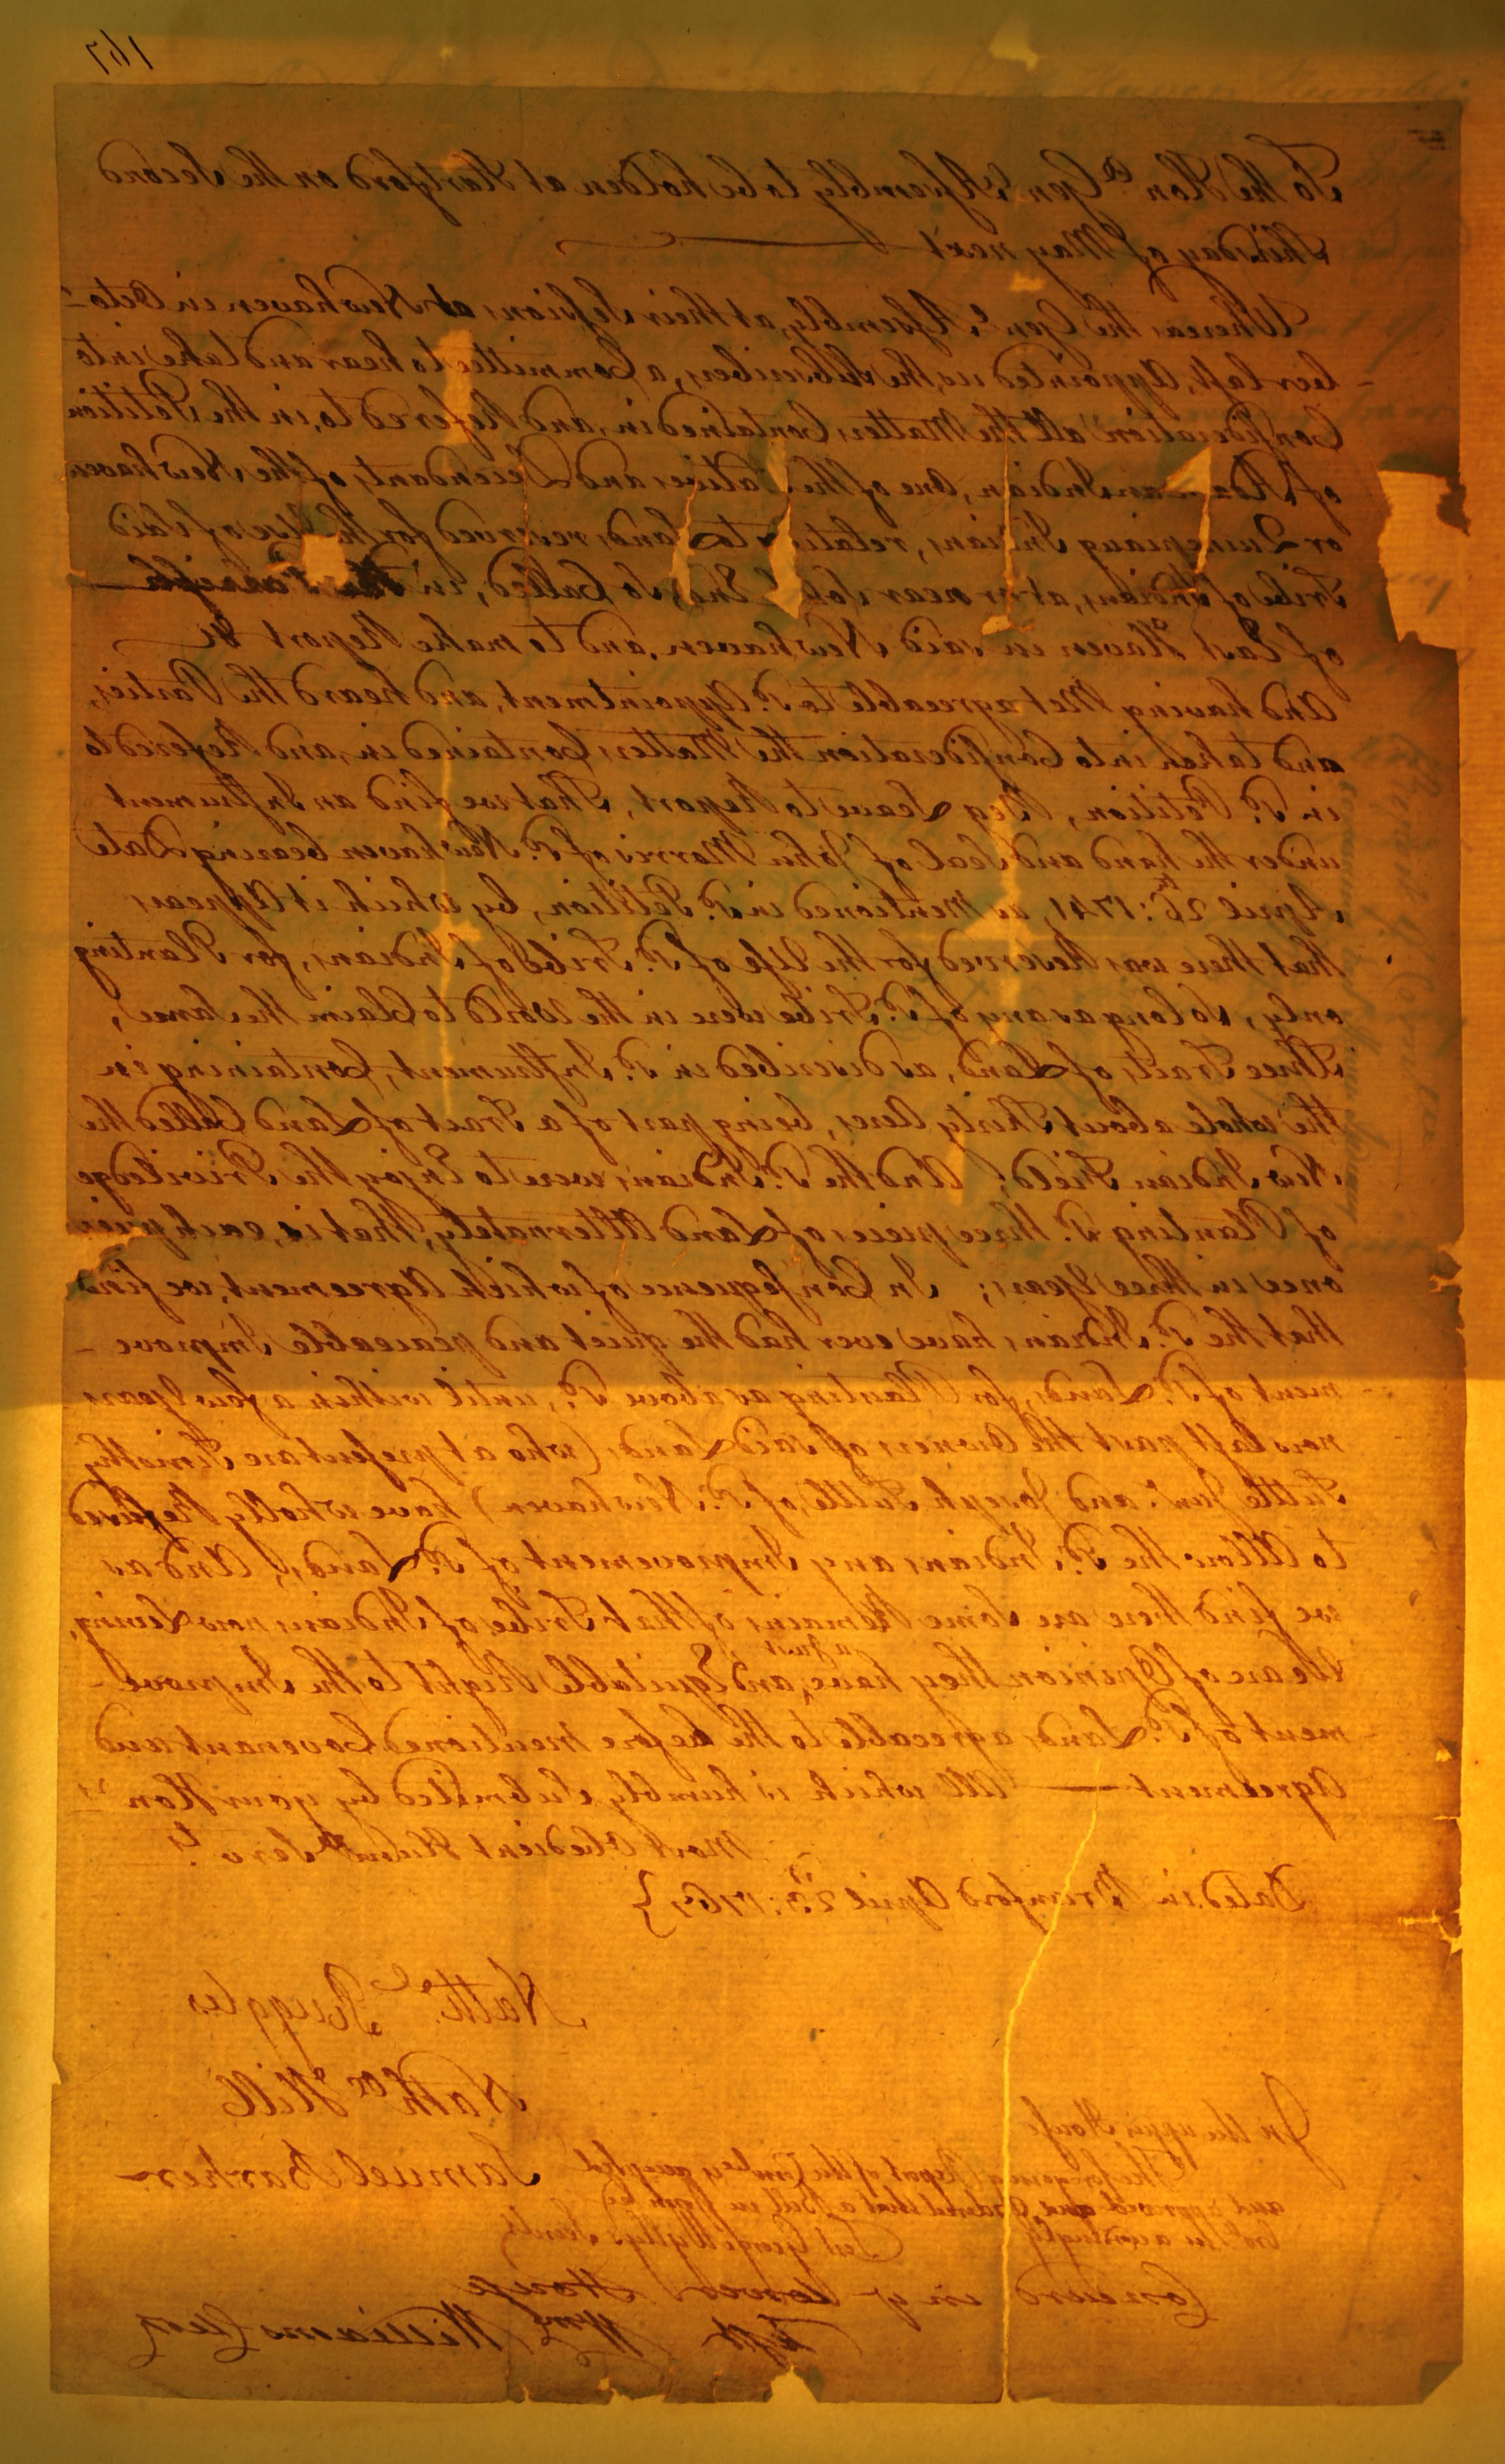 167
To the Hon.ble Gen.l Assembly to be holden at Hartford on the Second
Thursday of May next
Whereas the Gen.l Assembly, at their Session at New haven in Octo-
-ber last, Appointed us, the Subscribers, a Committee to hear and take into
Consideration all the Matters Contained in, and Refered to, in the Petition
of an Indian, One of the Natives and Decendants of the New haven
or Quinepiaug Indians, relative to Lands reserved for the Use of Said
Tribe of Indians, at or near So End, So Called, in the Parrish
of East Haven in said Newhaven, and to make Report &c
And having Met agreeable to s.d Appointment, and heard the Parties,
and taken into Consideration the Matters Contained in, and Refered to
in s.d Petition, Beg Leave to Report, That we find an Instrument
under the hand and Seal of John Morris of s.d Newhaven bearing Date
April 26th: 1741, as Mentioned in s.d Petition, by which it Appears
that there was Reserved for the Use of s.d Tribe of Indians, for Planting
only, so long as any of s.d Tribe were in the World to Claim the Same,
Three Tracts of Land, as discribed in s.d Instrument, Containing in
the whole about Thirty Acres, being part of a Tract of Land Called the
New Indian Field; And the s.d Indians were to Enjoy the Priviledge
of Planting s.d three pieces of Land Alternately, that is, each piece
once in three Years; In Consequence of which Agreement, we find
that the s.d Indians have ever had the quiet and peaceable Improve-
-ment of s.d Lands, for Planting as above s.d, until within a few Years
now last past the Owners of said Lands (who at present are Timothy
Tuttle Jun.r and Joseph Tuttle, of s.d Newhaven) have wholly Refused
to Allow the s.d Indians any Improvement of s.d Lands, And as
we find there are Some Remains of that Tribe of Indians now Living,
We are of Opinion they have, a Just and Equitable Right to the Improve-
-ment of s.d Lands agreeable to the before mentioned Covenant and
Agreement — All which is humbly Submitted by your Hon.rs
Most Obedient Hum.ble Serv.ts
Dated in Branford April 23.d: 1765}
Nath.l Ruggles
Nath.el Hill
Samuel Barker
In the upper House
The foregoing Report of the Com.tee is accepted
and approved and Ordered that a Bill in form be
bro.t in accordingly
Test George Wyllys Secret.y
Concurd in y.e Lower House
Test Wm Williams Clerk